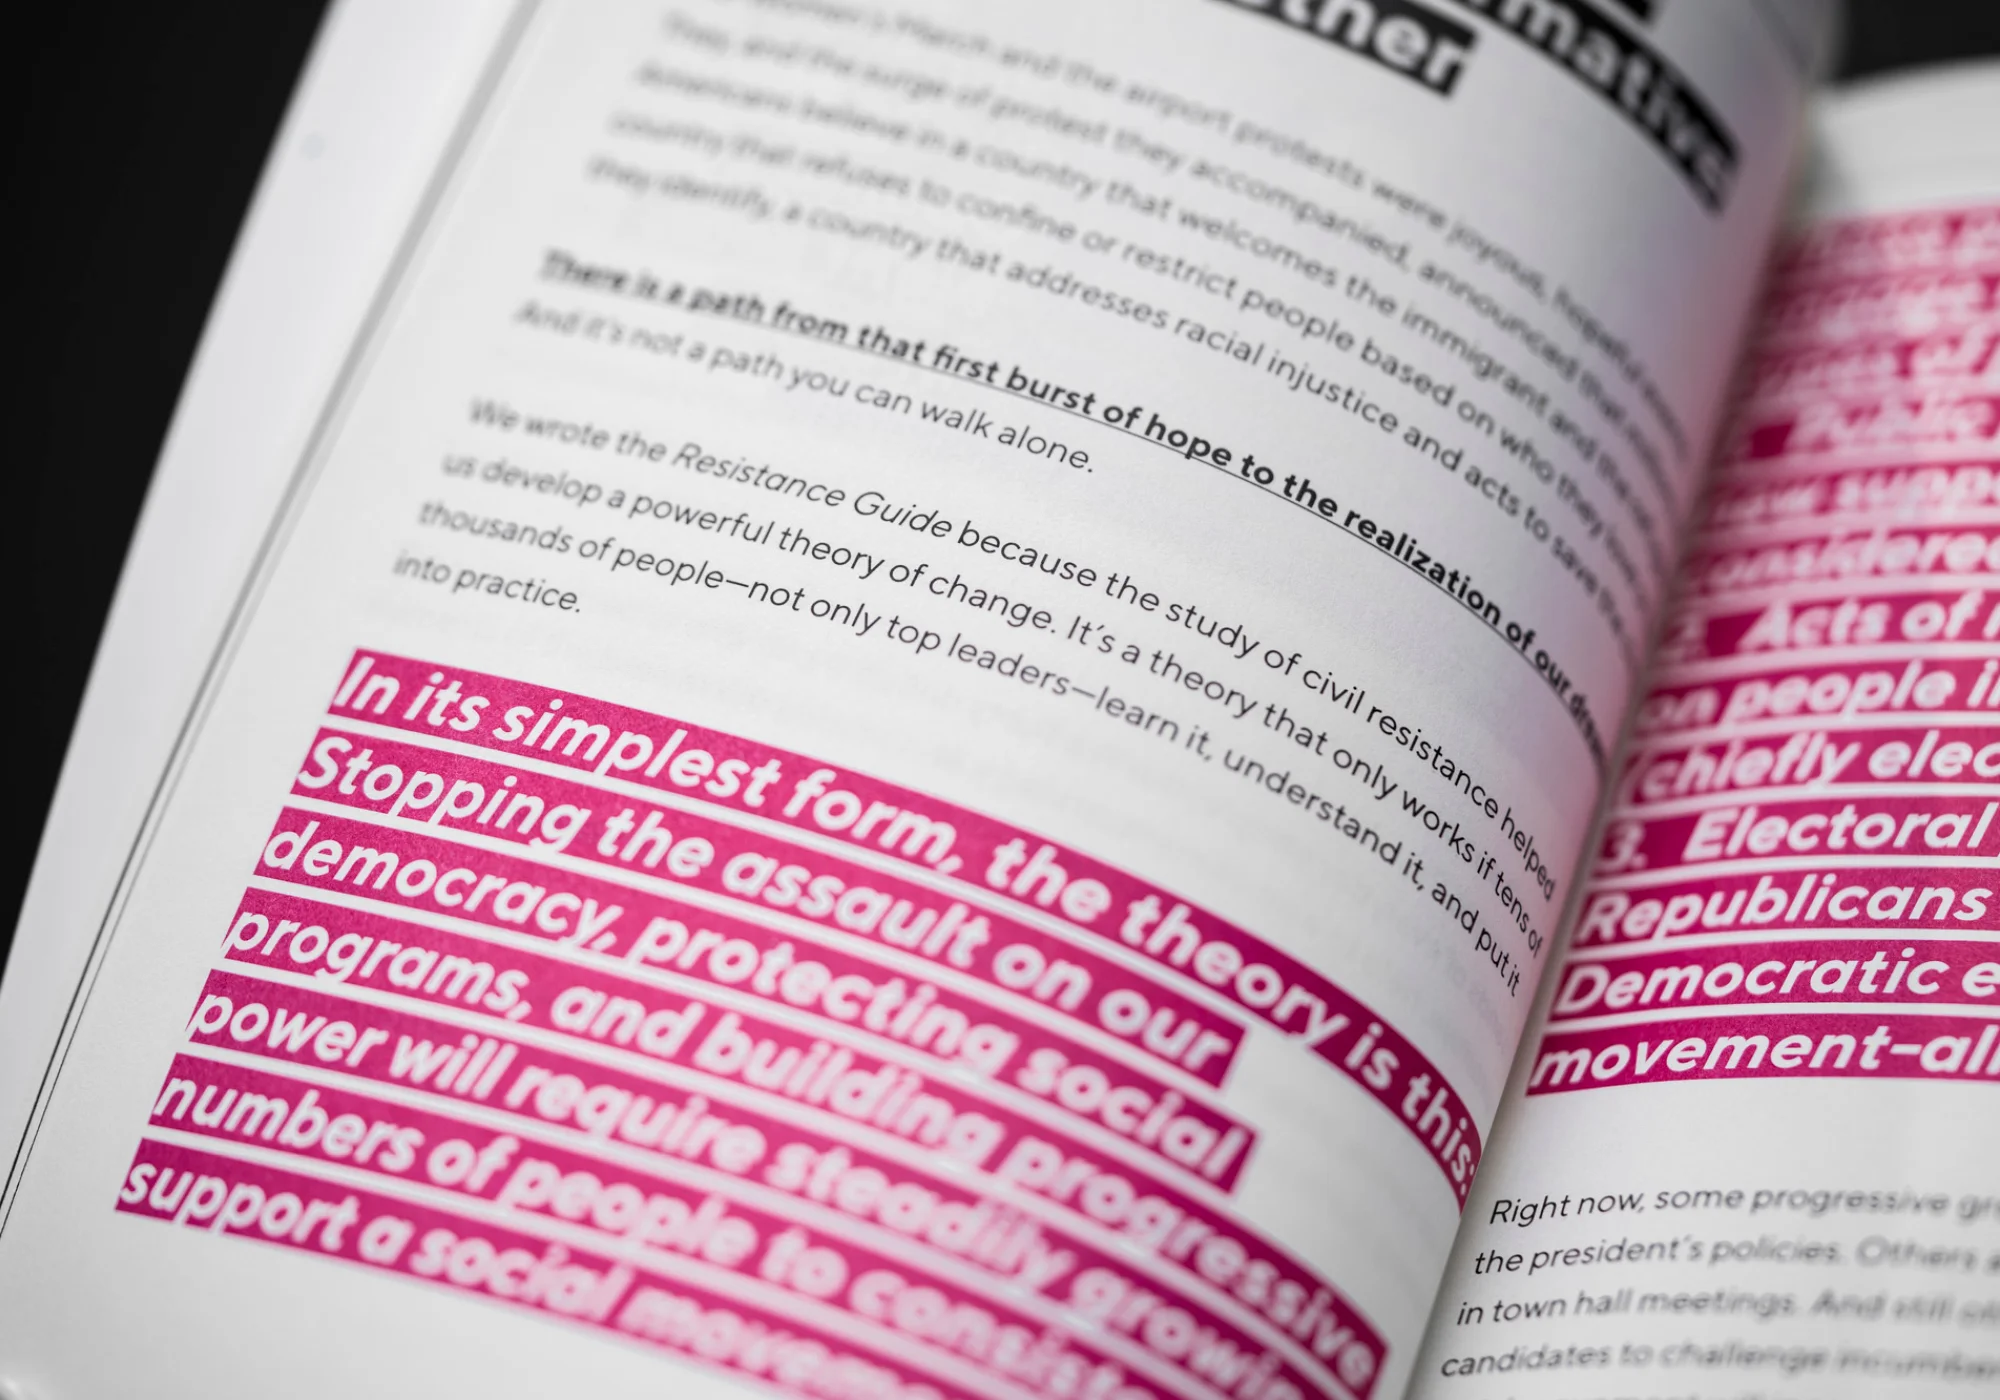 mative
other
Women's March and the airport protests were joyous, hopeful
They, and the surge of protest they accompanied, announced that
Americans believe in a country that welcomes the immigrant and the
country that refuses to confine or restrict people based on who they
they identify, a country that addresses racial injustice and acts to save the
There is a path from that first burst of hope to the realization of our
And it's not a path you can walk alone.
We wrote the Resistance Guide because the study of civil resistance helped
us develop a powerful theory of change. It's a theory that only works if tens of
thousands of people—not only top leaders—learn it, understand it, and put it
into practice.
In its simplest form, the theory is this:
Stopping the assault on our
democracy, protecting social
programs, and building progressive
power will require steadily growin
numbers of people to consist
support a social movem
of
Public
suppo
considered
Acts of
on people i
(chiefly elec
3. Electoral
Republicans
Democratic e
movement-all
Right now, some progressive gr
the president's policies. Others a
in town hall meetings. And still
candidates to challenge incumben